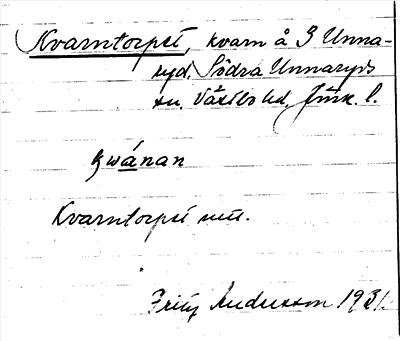 Kvarntorpet, kvarn å 3 Unna-
ryd, Södra Unnaryds
sn. Västbo hd. Jönk. l.
Kvarntorpet
Fritz Andersson 1931.